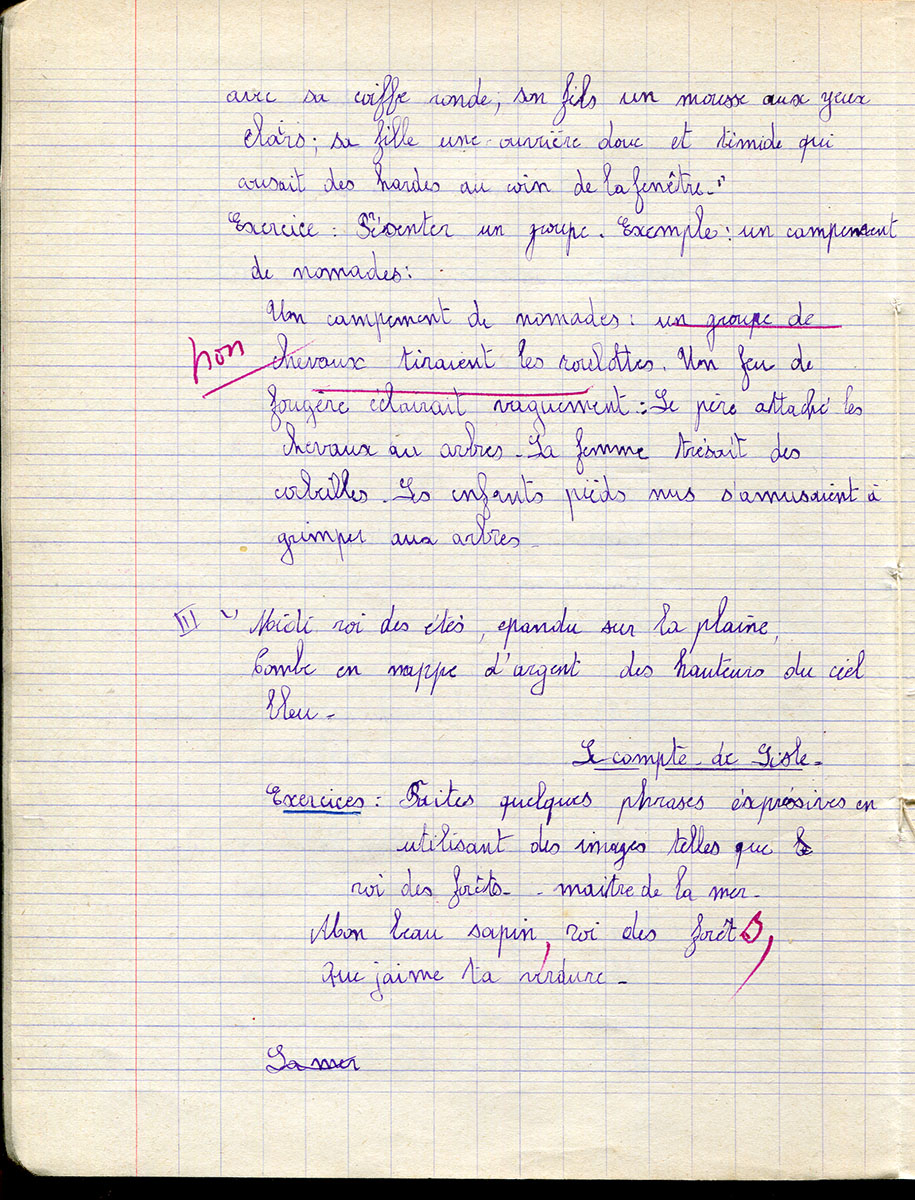 avec sa coiffe ronde ; son fils un mousse aux yeux
clairs ; sa fille une ouvrière douc et timide qui
cousait des hardes au coin de la fenêtre. "
Exercice : Présenter un groupe. Exemple : un campement
de nomades :
Un campement de nomades : un groupe de
non chevaux tiraient les roulottes. Un feu de
fougère éclairait vaguement : Le père attaché les
chevaux au arbres. La femme trésait des
corbeilles. Les enfants pieds nus s'amusaient à
grimper aux arbres.
III " Midi roi des étés, epandu sur la plaine,
Tombe en nappe d'argent des hauteurs du ciel
bleu.
Le compte de Lisle.
Exercices : Faites quelques phrases éxprésives en
utilisant des images telles que le
roi des forêts - maitre de la mer.
Mon beau sapin, roi des forêts,
Que jaime ta verdure.
La mer